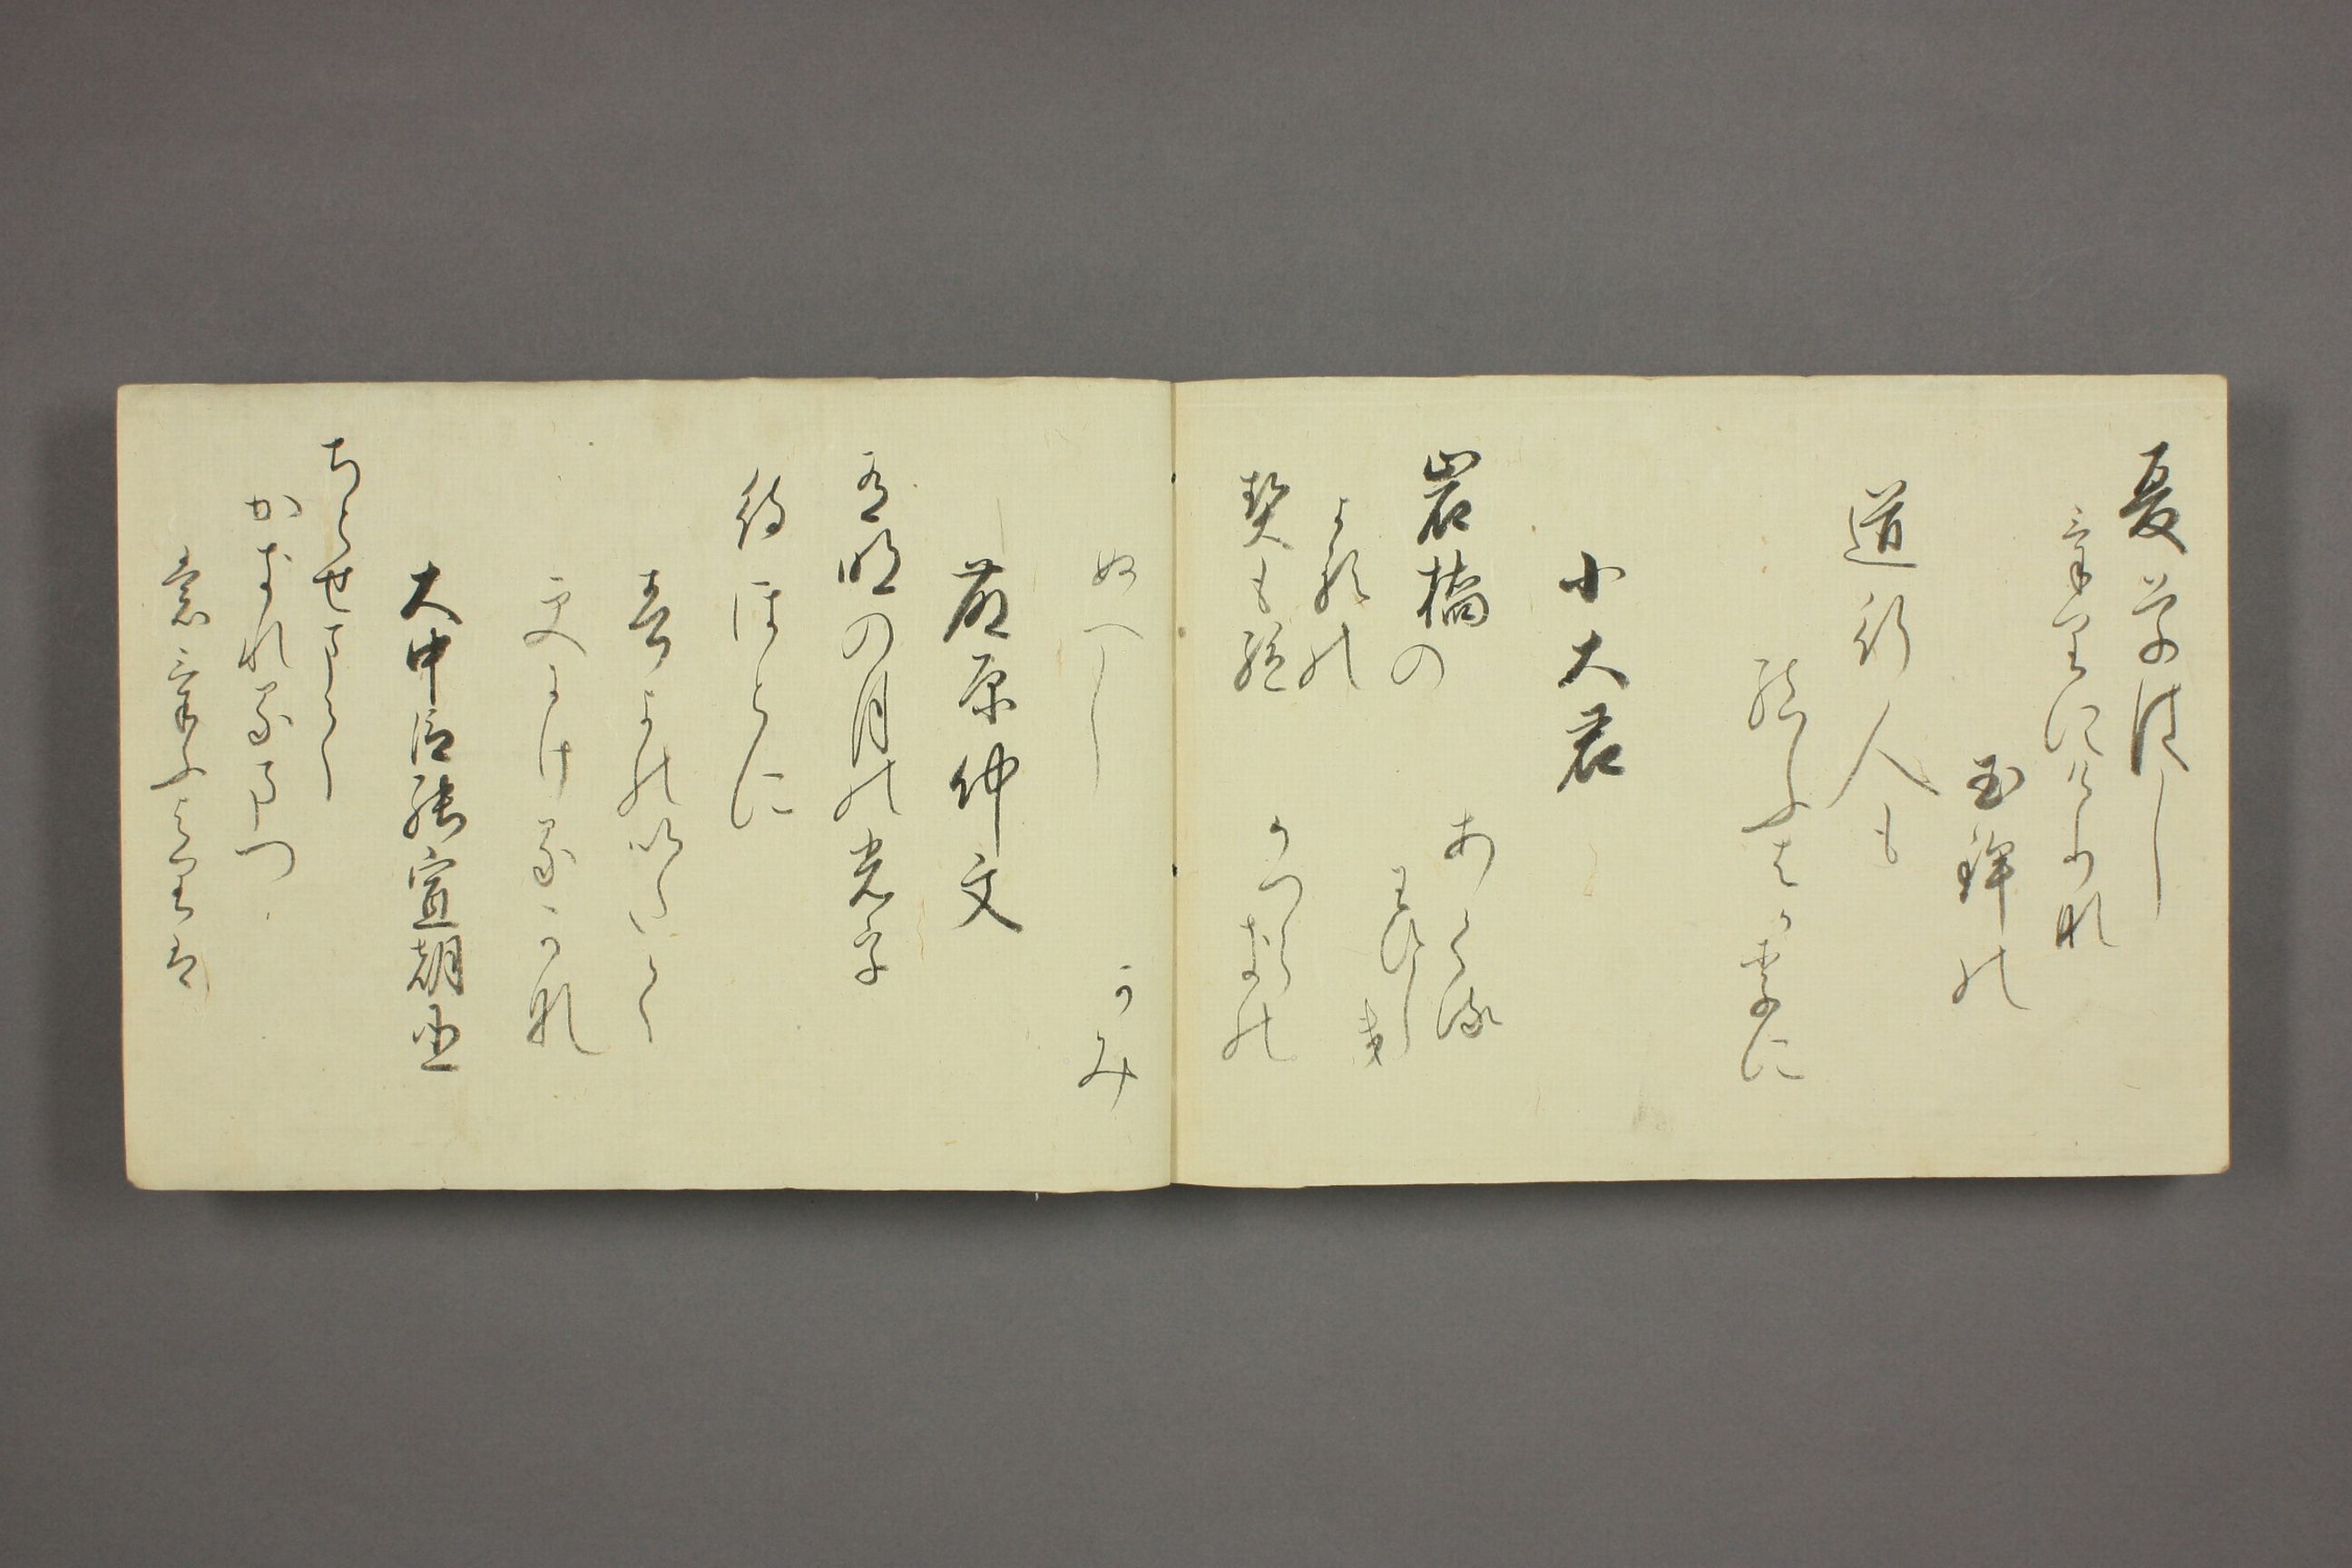 夏草はし
けりにけりな
玉鉾の
道行人も
結ふはかりに
小大君
岩橋の
よるの
契も絶
ぬへし
あくる
わひしき
かつらきの
かみ
藤原仲文
有明の月の光を
待ほとに
我よのいたく
更にけるかな
大中臣能宣朝臣
ちとせまて
かきれるまつ
もけふよりは